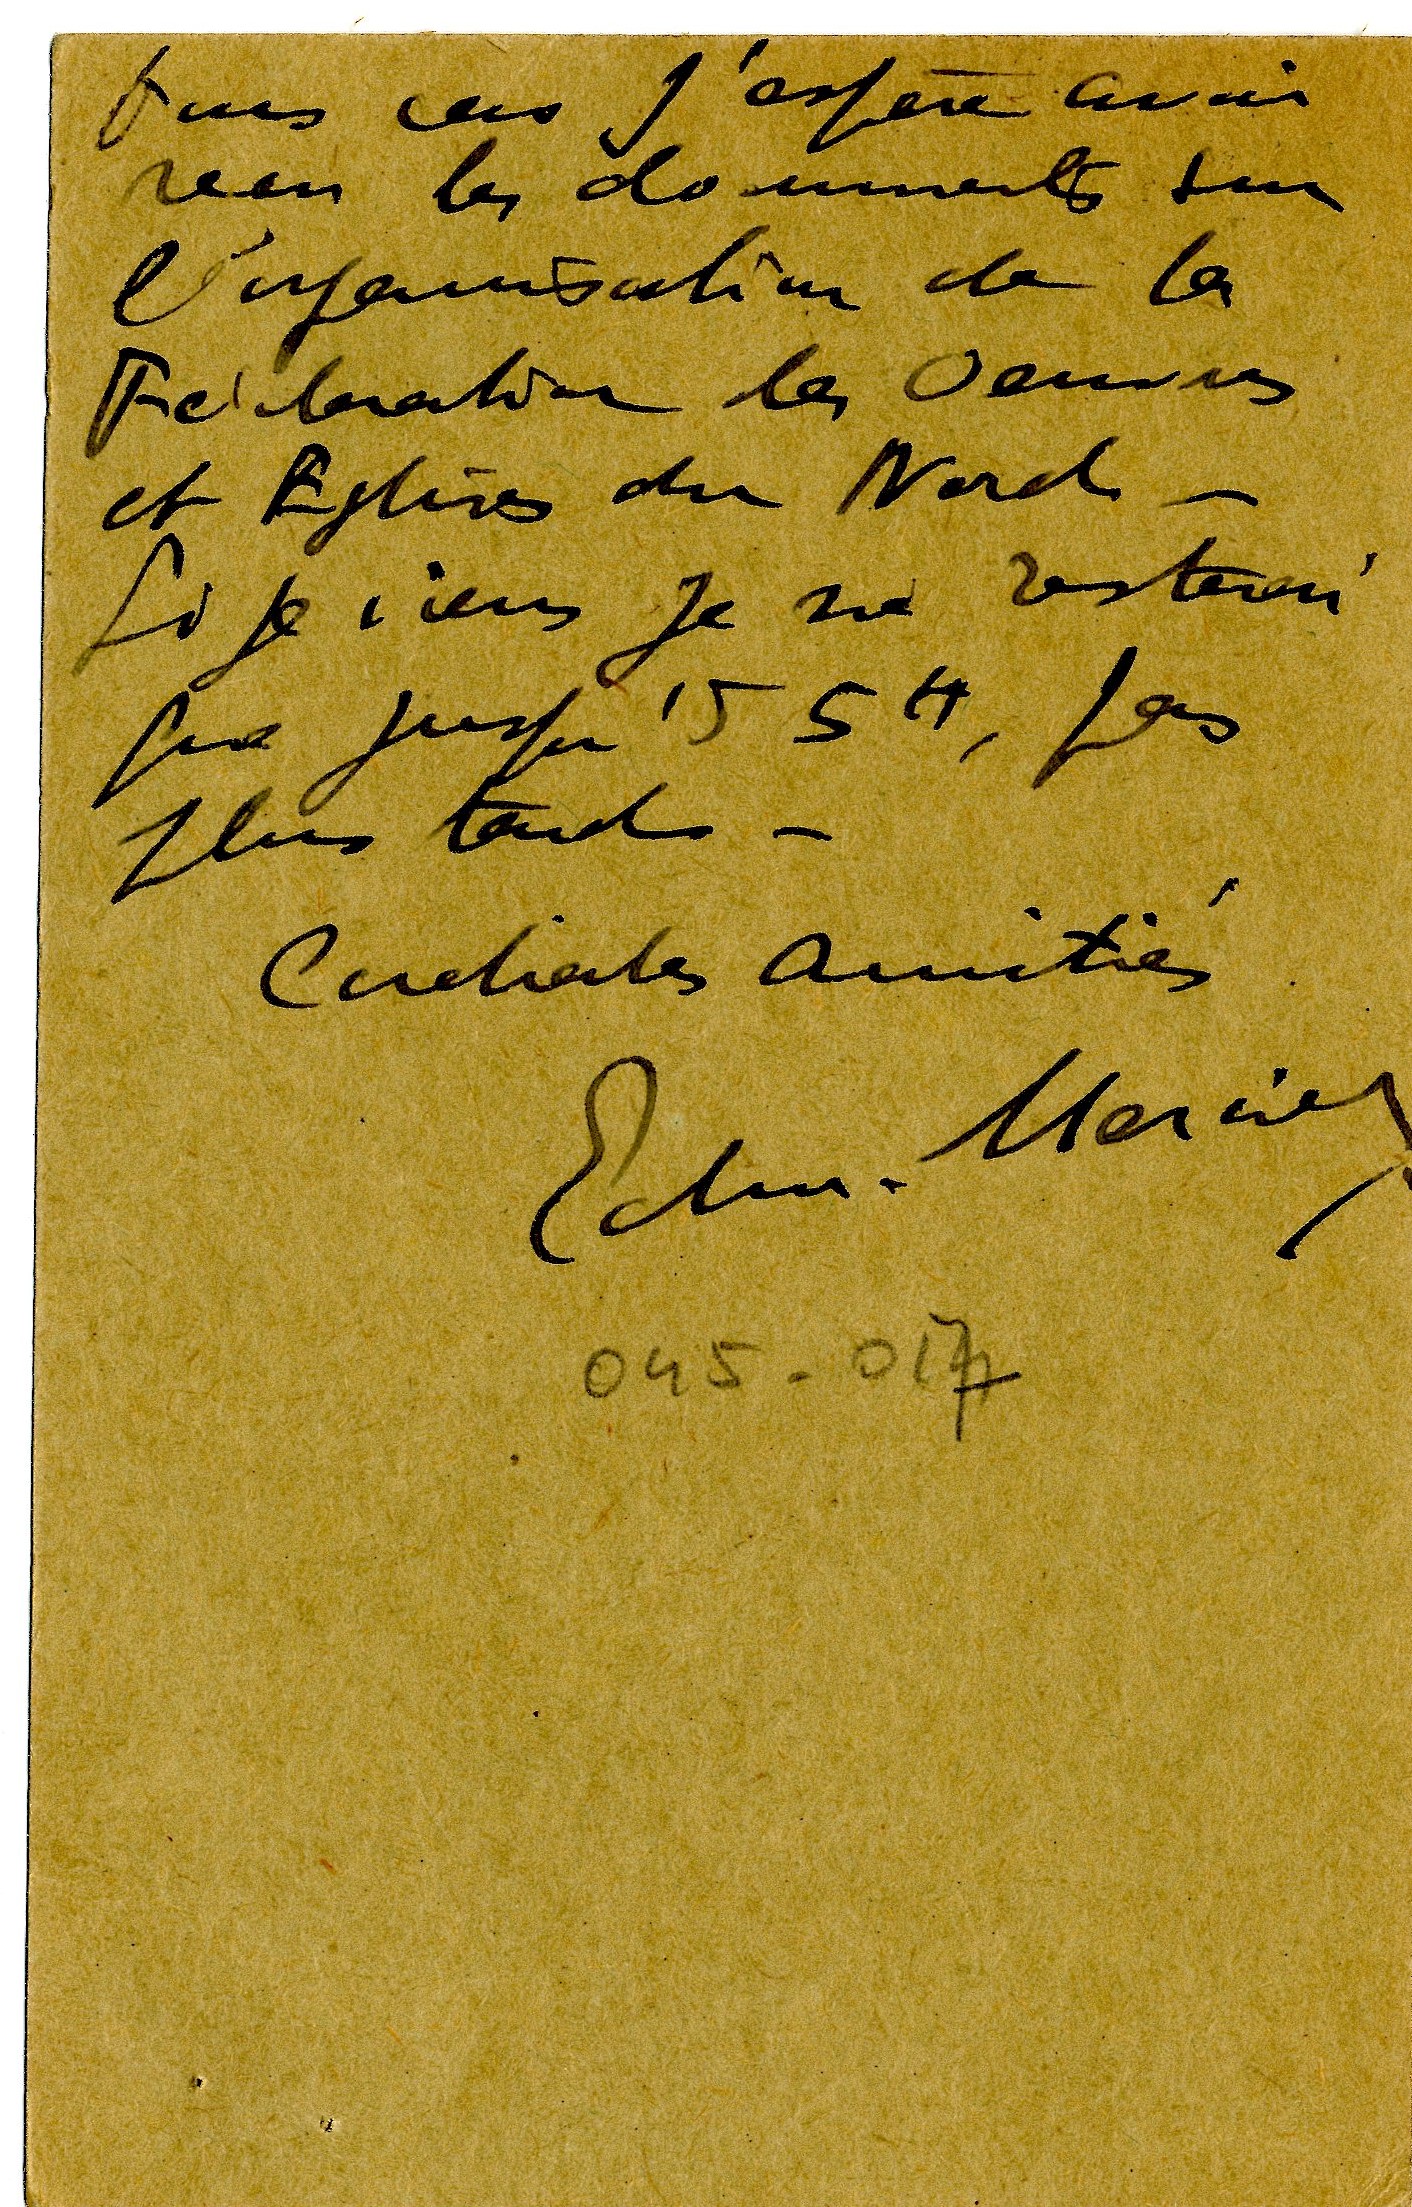 tous cas j'espère avoir
reçu les documents sur
l'organisation de la
Fédération des Oeuvres
et Eglises du Nord –
Si je viens je ne resterai
que jusqu'à 5 H, pas
plus tard –
Cordiales amitiés
Edm. Mercier
045-017